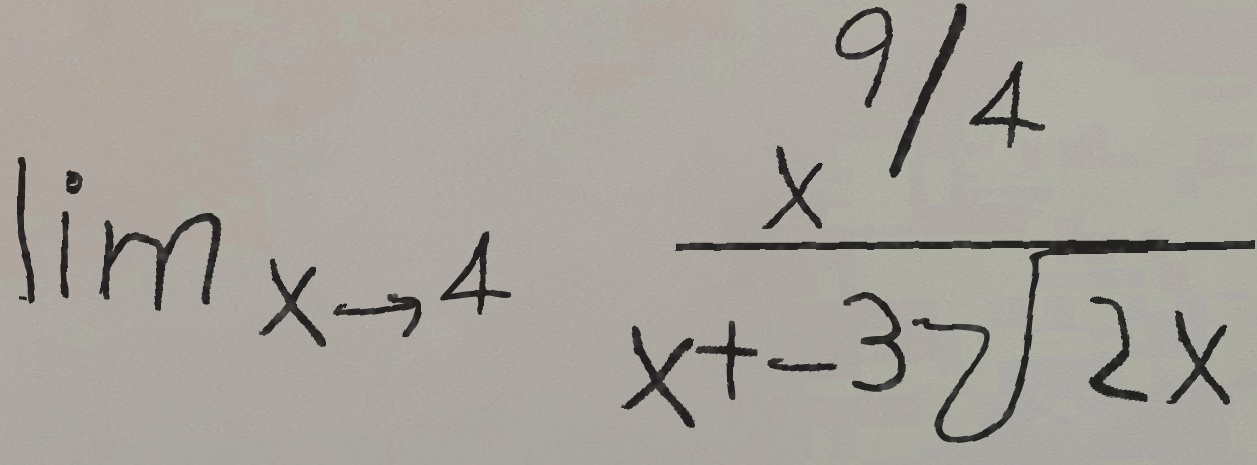 lim x→4 x^9/4 / x+-3√2x